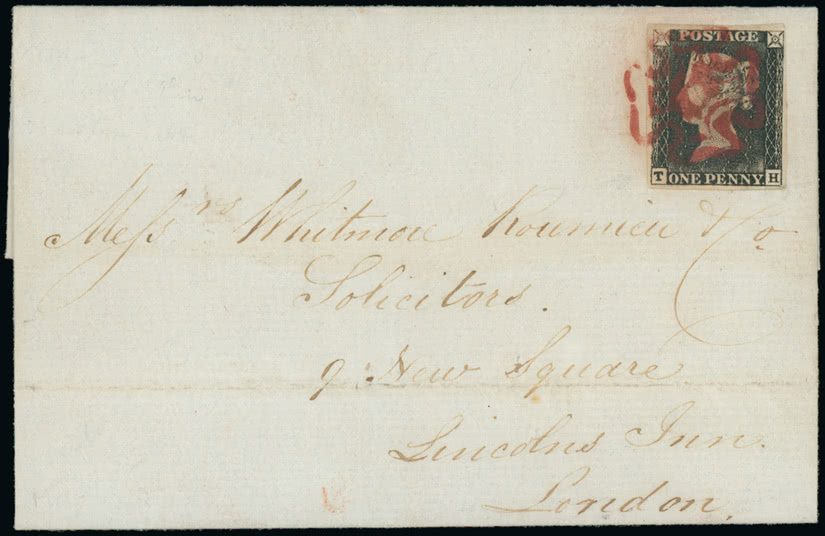 POSTAGE
T ONE PENNY H
Messrs Whitmore Roumieu & Co.
Solicitors.
9 New Square
Lincolns Inn.
London.